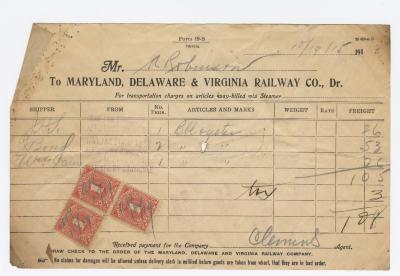 Form 19-S
12/19/15 191
Mr. Robinson
To MARYLAND, DELAWARE & VIRGINIA RAILWAY CO., Dr.
For transportation charges on articles way-billed via Steamer
SHIPPER FROM No. Pkgs. ARTICLES AND MARKS WEIGHT RATE FREIGHT
1 B Oyster 26
Bond 2 " " 53
1 " " 26
105
tax 3
108
Received payment for the Company Clements Agent.
DRAW CHECK TO THE ORDER OF THE MARYLAND, DELAWARE AND VIRGINIA RAILWAY COMPANY.
No claims for damages will be allowed unless delivery clerk is notified before goods are taken from wharf, that they are in bad order.